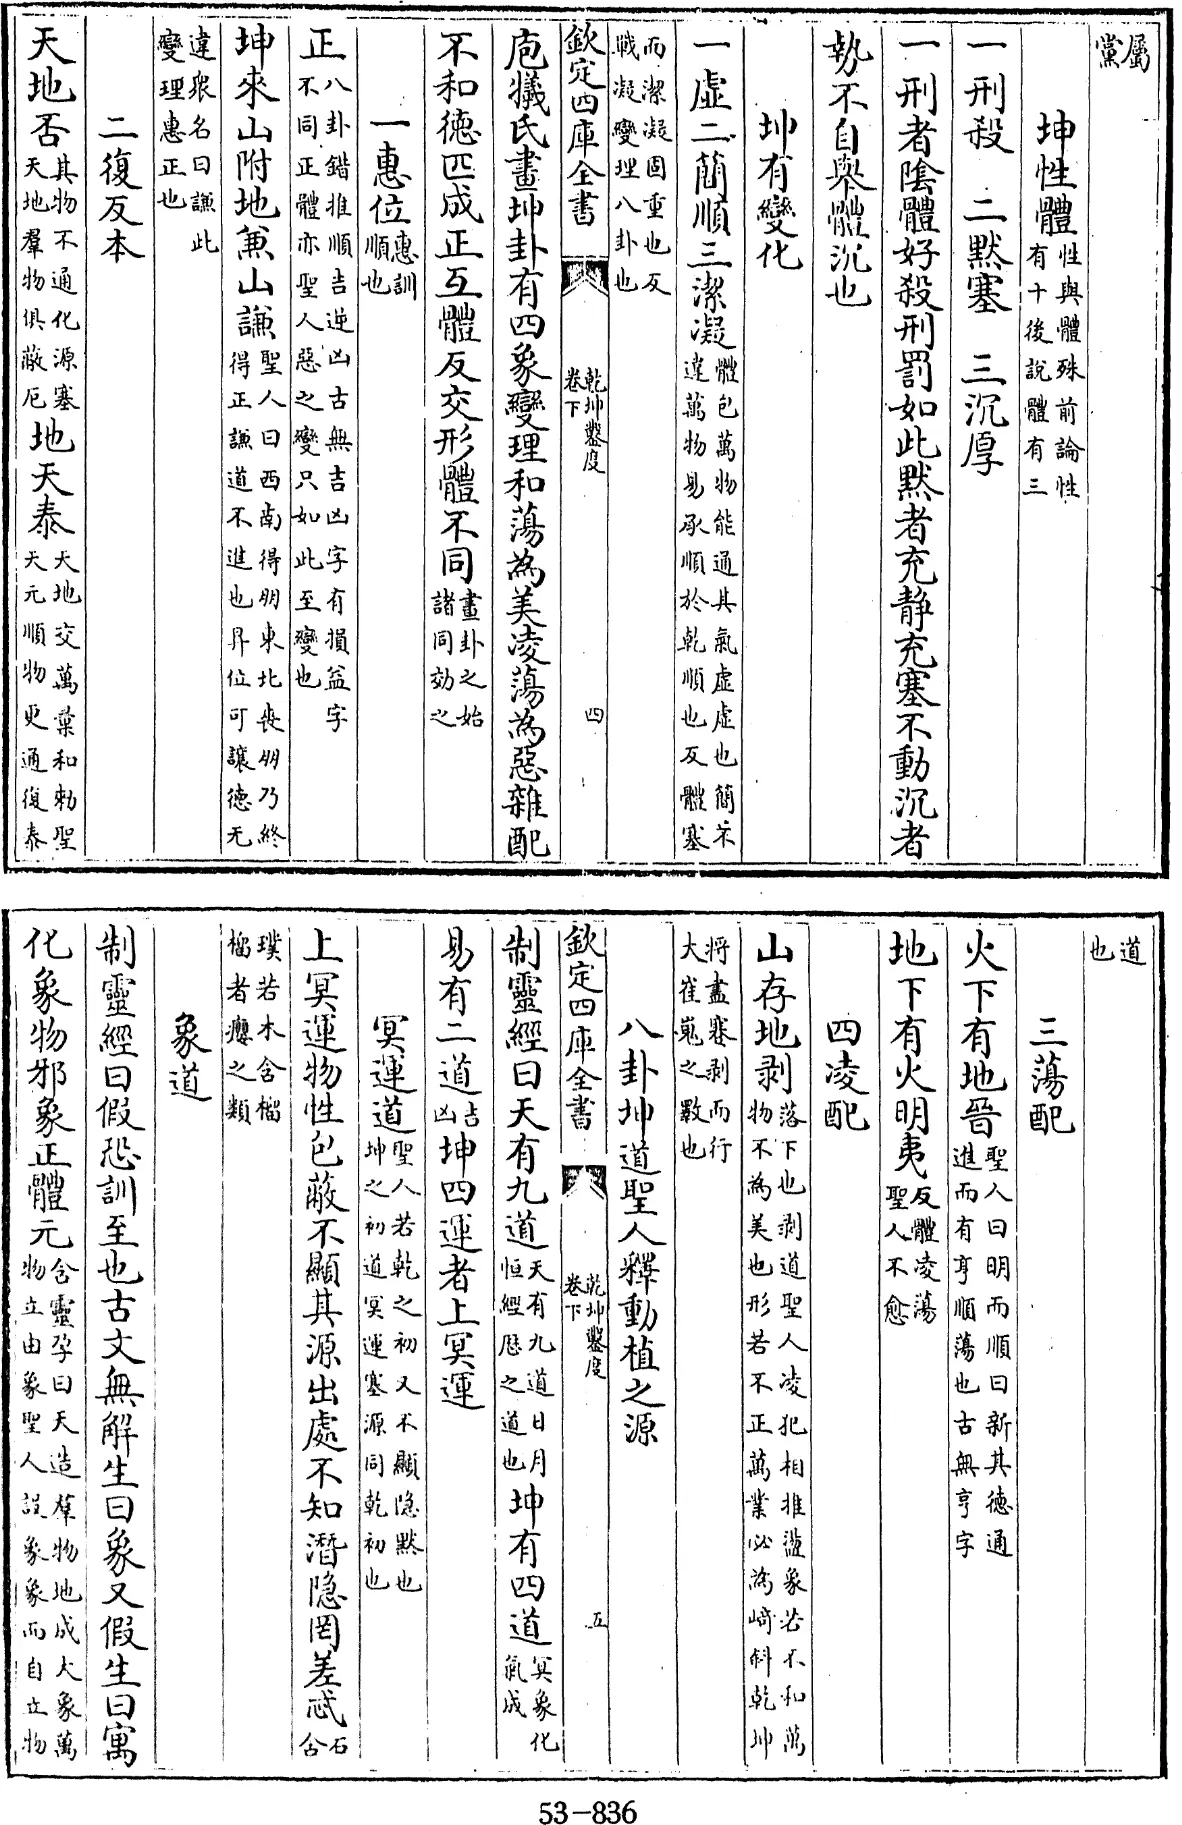 屬
黨
坤性體性與體殊前論性
有十後說體有三
一刑殺　二默塞　三沉厚
一刑者陰體好殺刑罰如此默者充静充塞不動沉者
執不自舉體沉也
坤有變化
一虚二簡順三潔凝體包萬物能通其氣虚虚也簡不
違萬物易承順於乾順也反體塞
而潔凝固重也反
戰凝變理八卦也
欽定四庫全書　乾坤鑿度
卷下　四
庖犧氏畫坤卦有四象變理和蕩為美凌蕩為惡雜配
不和德匹成正互體反交形體不同畫卦之始
諸同効之
一惠位惠訓
順也
正八卦錯推順吉逆凶古無吉凶字有損益字
不同正體亦聖人惡之變只如此至變也
坤來山附地兼山謙聖人曰西南得朋東北喪朋乃終
得正謙道不進也昇位可讓德无
違眾名曰謙此
變理惠正也
二復反本
天地否其物不通化源塞
天地羣物俱蔽厄地天泰天地交萬葉和勑聖
天元順物更通復泰
道
也
三蕩配
火下有地晉聖人曰明而順曰新其德通
進而有亨順蕩也古無亨字
地下有火明夷反體凌蕩
聖人不愈
四凌配
山存地剥落下也剥道聖人凌犯相推盪象若不和萬
物不為美也形若不正萬業必為﨑斜乾坤
將盡蹇剥而行
大崔嵬之數也
八卦坤道聖人釋動植之源
欽定四庫全書　乾坤鑿度
卷下　五
制靈經曰天有九道天有九道日月
恒經歷之道也坤有四道冥象化
氣成
易有二道吉
凶坤四運者上冥運
冥運道聖人若乾之初又不顯隐默也
坤之初道冥運塞源同乾初也
上冥運物性包蔽不顯其源出處不知潛隐罔差忒石
含
璞若木含榴
榴者癭之類
象道
制靈經曰假恐訓至也古文無解生曰象又假生曰寓
化象物邪象正體元含靈孕曰天造羣物地成大象萬
物立由象聖人設象象而自立物
53-836